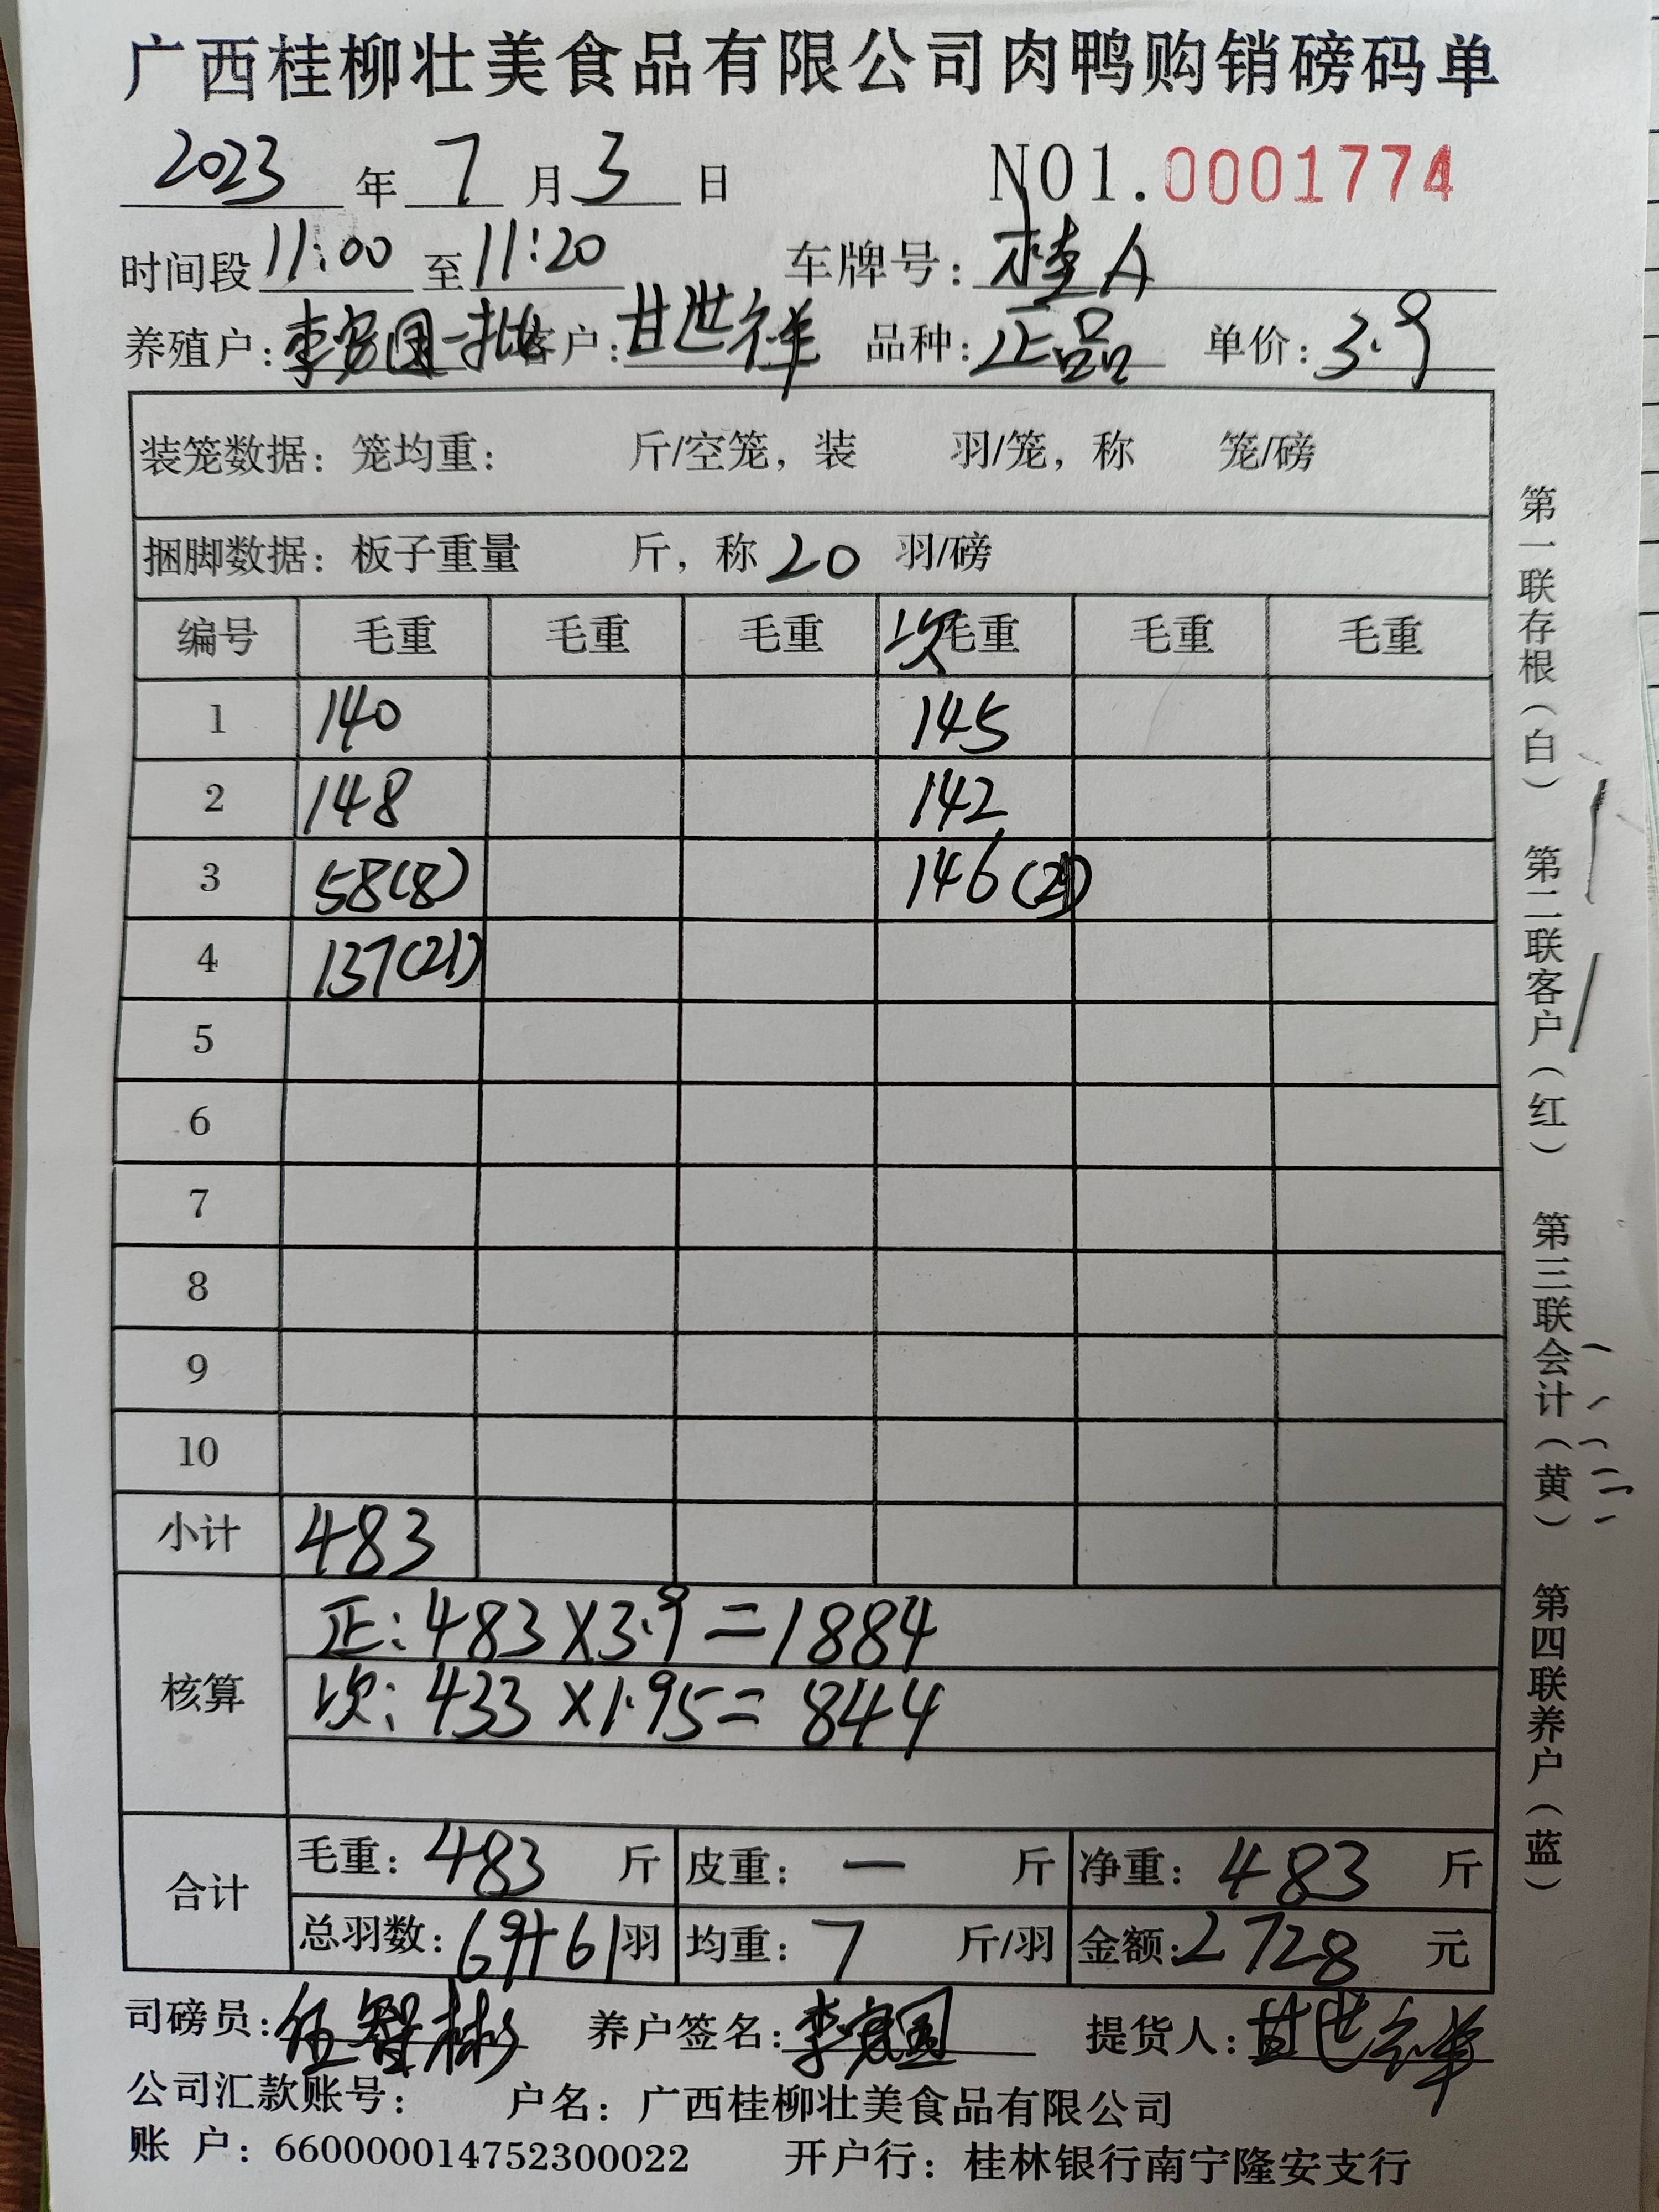 广西桂柳壮美食品有限公司肉鸭购销磅码单
2023 年 7 月 3 日 NO1.0001774
时间段 11:00 至 11:20 车牌号: 桂A
养殖户: 李家国一批 客户: 甘世祥 品种: 正品 单价: 3.9
装笼数据: 笼均重: 斤/空笼, 装 羽/笼, 称 笼/磅
捆脚数据: 板子重量 斤, 称 20 羽/磅
编号 毛重 毛重 毛重 次 毛重 毛重 毛重
1 140 145
2 148 142
3 58(8) 146(21)
4 137(21)
5
6
7
8
9
10
小计 483
核算 正: 483 X 3.9 = 1884
次: 433 X 1.95 = 844
合计 毛重: 483 斤 皮重: — 斤 净重: 483 斤
总羽数: 69+61 羽 均重: 7 斤/羽 金额: 2728 元
司磅员: 伍智彬 养户签名: 李家国 提货人: 甘世祥
公司汇款账号: 户名: 广西桂柳壮美食品有限公司
账 户: 660000014752300022 开户行: 桂林银行南宁隆安支行
第一联存根(白) 第二联客户(红) 第三联会计(黄) 第四联养户(蓝)